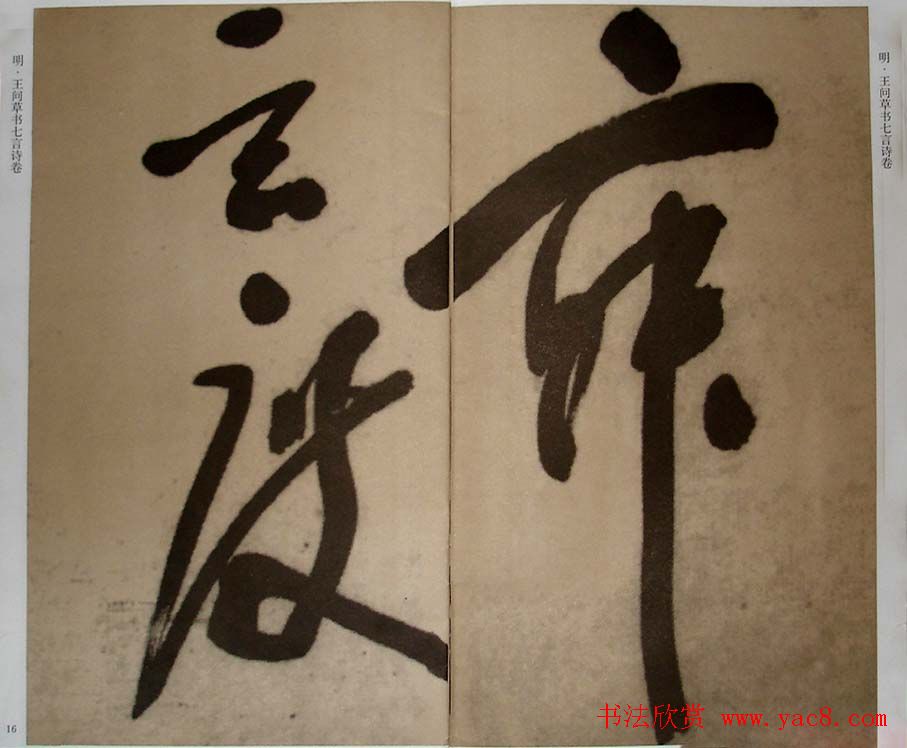 明·王问草书七言诗卷
玄度
明·王问草书七言诗卷
16
书法欣赏 www.yac8.com